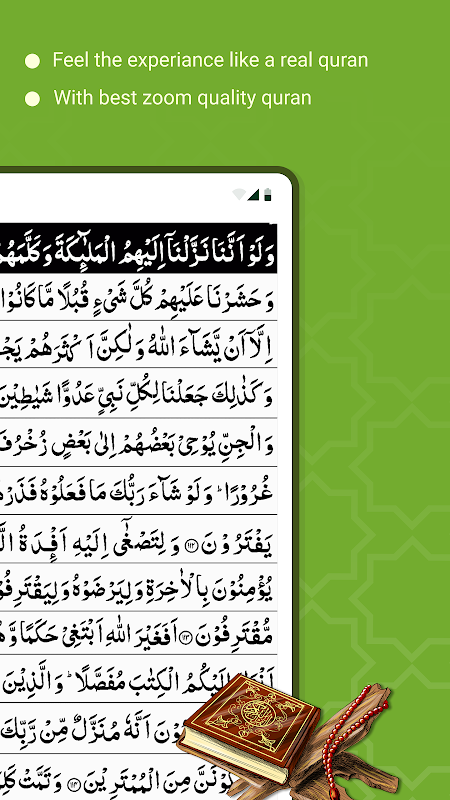 Feel the experiance like a real quran
With best zoom quality quran
وَلَوْ اَنَّنَا نَزَّلْنَاۤ اِلَيْهِمُ الْمَلٰٓئِكَةَ وَكَلَّمَهُمُ
وَحَشَرْنَا عَلَيْهِمْ كُلَّ شَيْءٍ قُبُلًا مَّا كَانُوْا
اِلَّاۤ اَنْ يَّشَآءَ اللّٰهُ وَلٰكِنَّ اَكْثَرَهُمْ
وَكَذٰلِكَ جَعَلْنَا لِكُلِّ نَبِيٍّ عَدُوًّا شَيٰطِيْنَ
وَالْجِنِّ يُوْحِيْ بَعْضُهُمْ اِلٰى بَعْضٍ زُخْرُفَ
غُرُوْرًا ؕ وَلَوْ شَآءَ رَبُّكَ مَا فَعَلُوْهُ فَذَرْهُمْ
يَفْتَرُوْنَ ﴿١١٢﴾ وَلِتَصْغٰۤى اِلَيْهِ اَفْـِٕدَةُ
يُؤْمِنُوْنَ بِالْاٰخِرَةِ وَلِيَرْضَوْهُ وَلِيَقْتَرِفُوْا
مُّقْتَرِفُوْنَ ﴿١١٣﴾ اَفَغَيْرَ اللّٰهِ اَبْتَغِيْ حَكَمًا وَّهُوَ
اِلَيْكُمُ الْكِتٰبَ مُفَصَّلًا ؕ وَالَّذِيْنَ
اَنَّهٗ مُنَزَّلٌ مِّنْ رَّبِّكَ
مِنَ الْمُمْتَرِيْنَ ﴿١١٤﴾ وَتَمَّتْ